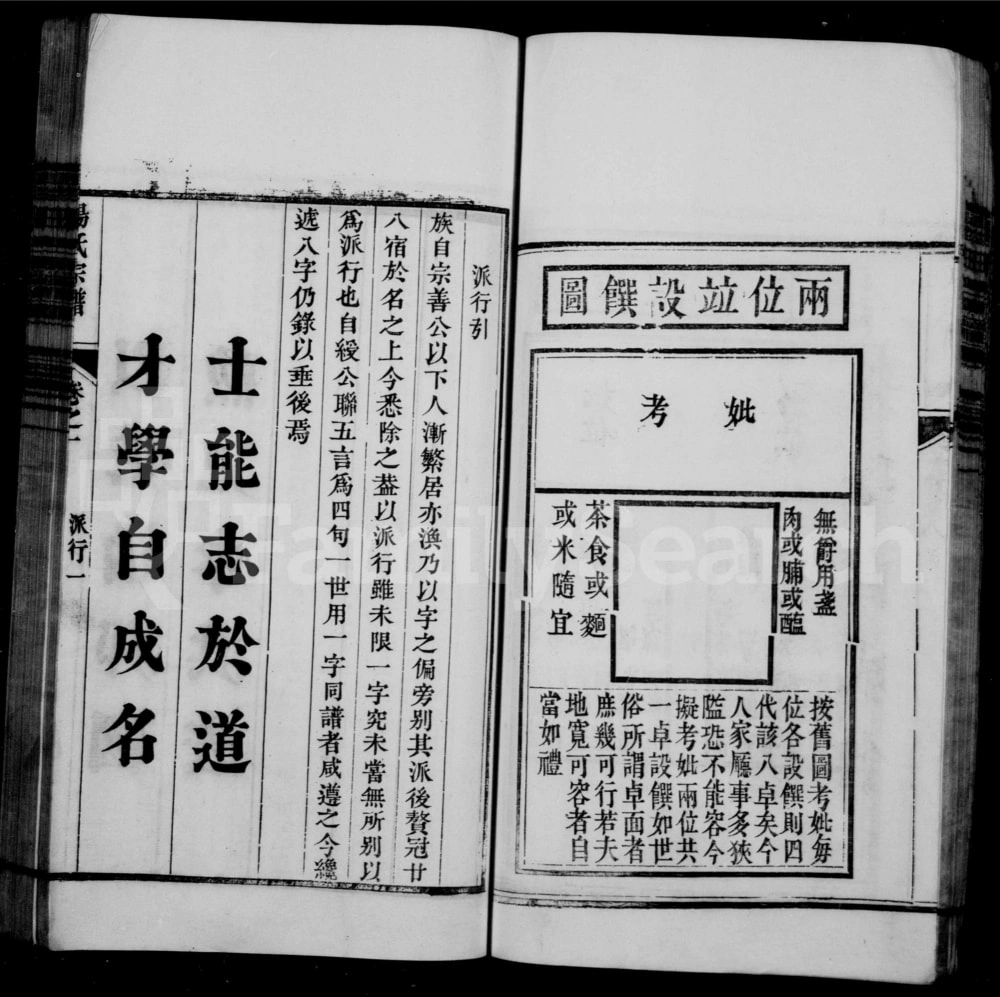 兩位竝設饌圖
妣
考
無爵用盞
肉或脯或醢
茶食或麵
或米隨宜
按舊圖考妣每
位各設饌則四
代該八卓矣今
人家廳事多狹
隘恐不能容今
擬考妣兩位共
一卓設饌如世
俗所謂卓面者
庶幾可行若夫
地寬可容者自
當如禮
派行引
族自宗善公以下人漸繁居亦渙乃以字之偏旁别其派後贅冠廿
八宿於名之上今悉除之葢以派行雖未限一字究未嘗無所别以
爲派行也自緩公聯五言爲四句一世用一字同譜者咸遵之今纔
遞八字仍錄以垂後焉
士能志於道
才學自成名
氏宗譜
卷之二
派行一
FamilySearch